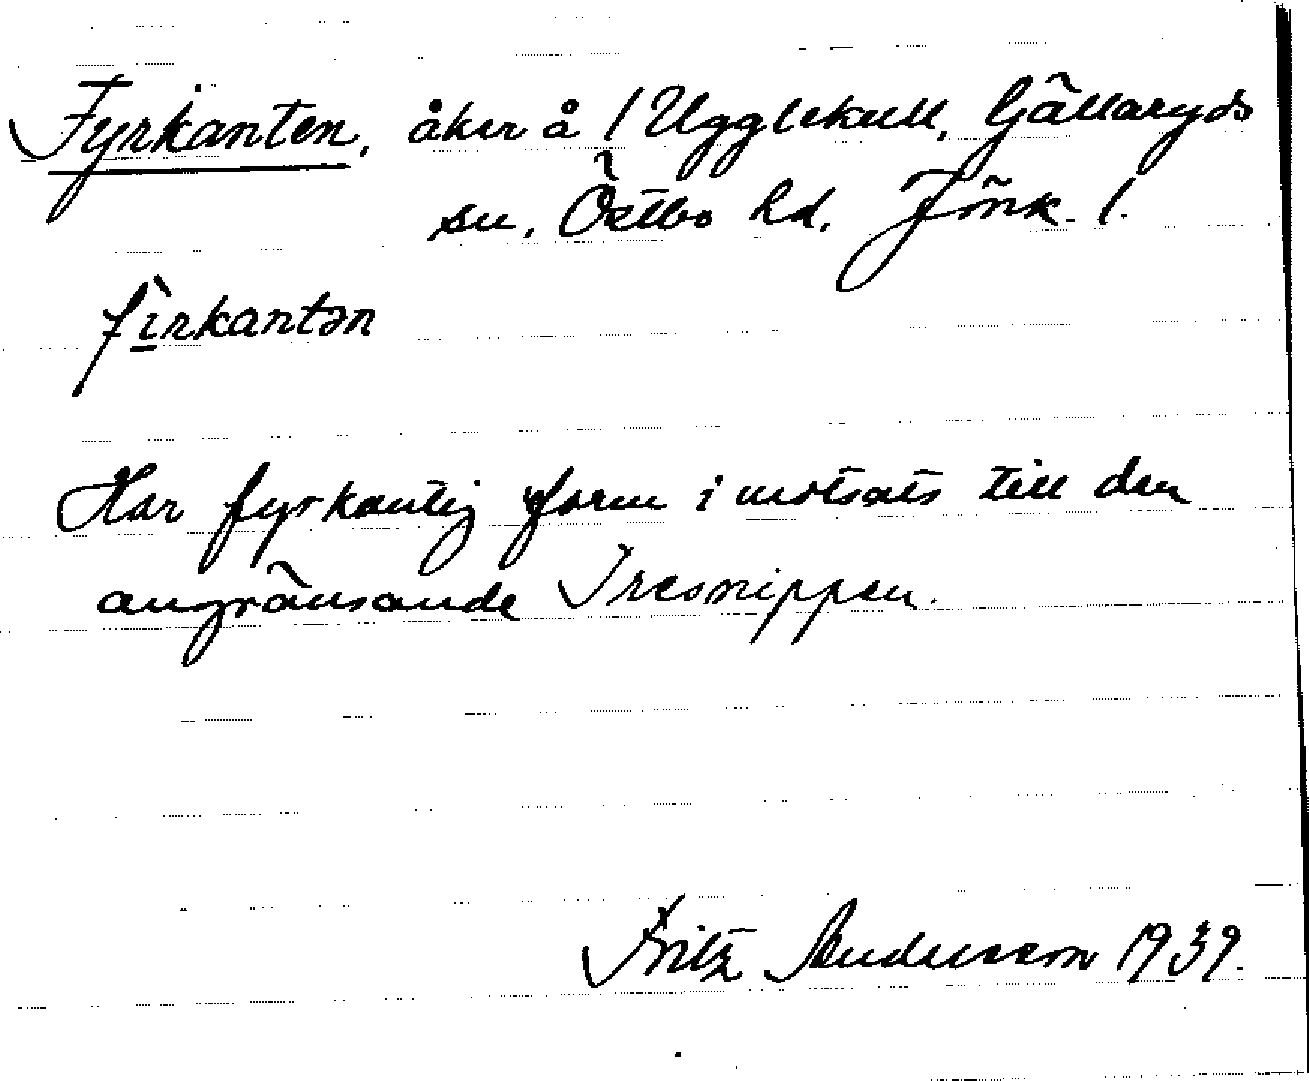 Fyrkanten, åker å / Ugglekull, Gällaryds
sn, Östbo hd, Jönk. l.
fìrkantən
Har fyrkantig form i motsats till den
angränsande Tresnippen.
Fritz Andersson 1939.